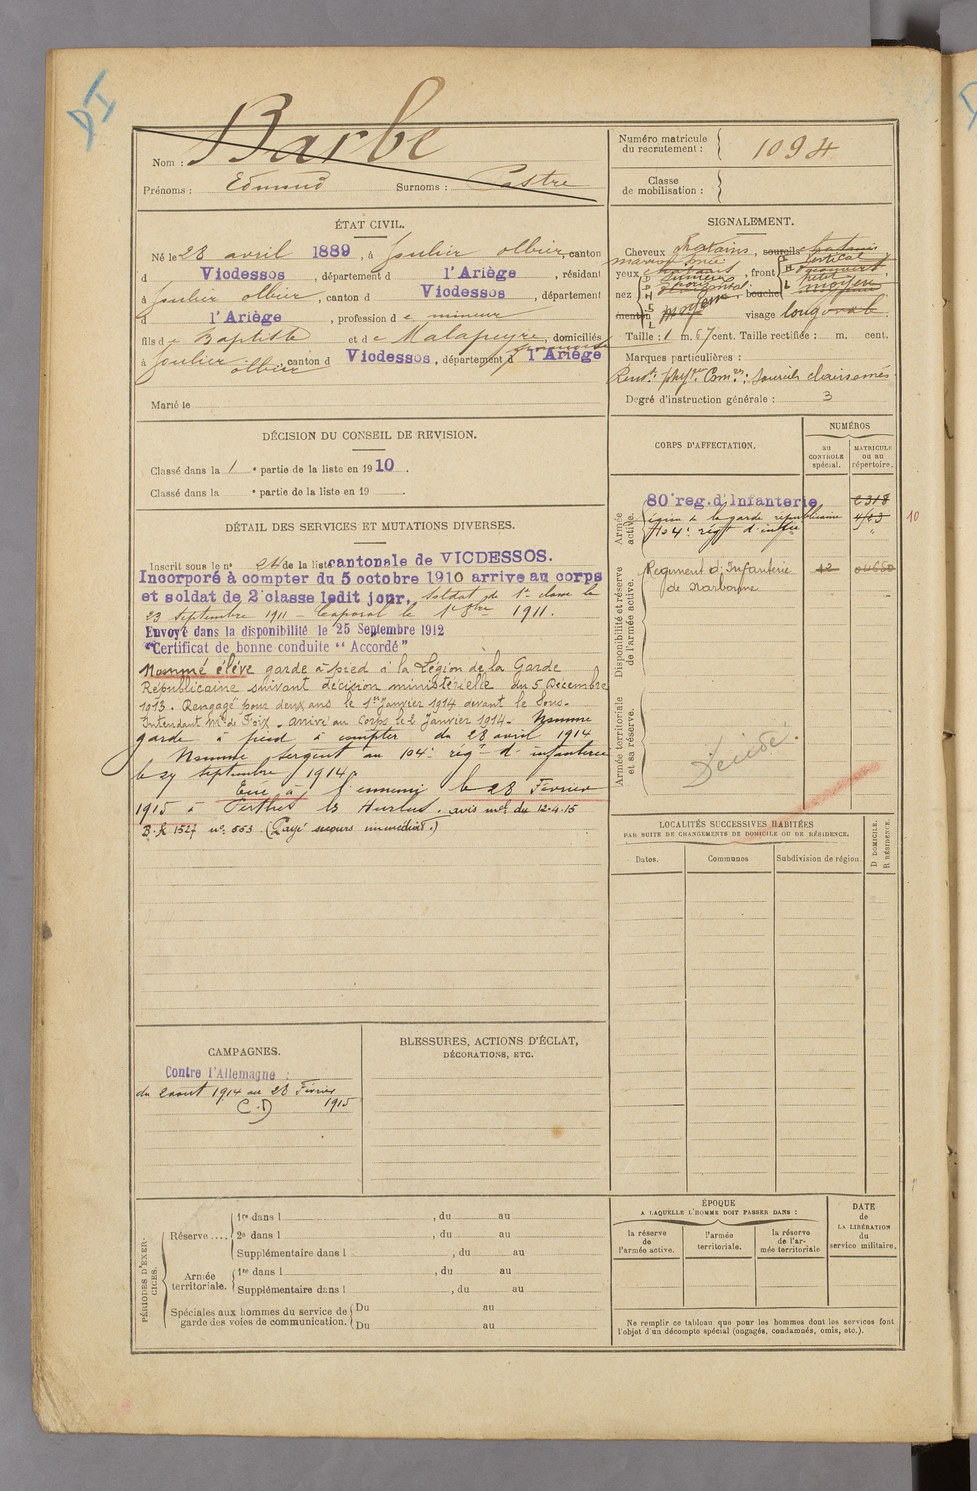 DI
Barbe
Nom :
Prénoms : Edmund Surnoms : Castre
Numéro matricule
du recrutement : 1094
Classe
de mobilisation :
ÉTAT CIVIL.
Né le 28 avril 1889, à Goulier Olbier, canton
d Vicdessos, département d l'Ariège, résidant
à Goulier Olbier, canton d Vicdessos, département
d l'Ariège, profession de mineur
fils de Baptiste et de Malapeyre, domiciliés
à Goulier Olbier, canton d Vicdessos, département d l'Ariège
Marié le
DÉCISION DU CONSEIL DE REVISION.
Classé dans la 1e partie de la liste en 1910.
Classé dans la e partie de la liste en 19
DÉTAIL DES SERVICES ET MUTATIONS DIVERSES.
Inscrit sous le n° 24 de la liste cantonale de VICDESSOS.
Incorporé à compter du 5 octobre 1910 arrivé au corps
et soldat de 2e classe ledit jour, soldat de 1e classe le
23 septembre 1911 – Caporal le 1911.
Envoyé dans la disponibilité le 25 Septembre 1912
"Certificat de bonne conduite "Accordé"
Nommé élève garde à pied à la Légion de la Garde
Républicaine suivant décision ministérielle du 5 Décembre
1913. Rengagé pour deux ans le 1er Janvier 1914 devant le Sous-
Intendant Mre de Foix – arrivé au Corps le 2 Janvier 1914 – Nommé
garde à pied à compter du 28 avril 1914
Nommé sergent au 104e régt d'infanterie
le 27 septembre 1914.
Tué à l'ennemi le 28 Février
1915 à Perthes les Hurlus. avis mel du 12-4-15
B.K 1527 n° 553 (Payé secours immédiat.)
SIGNALEMENT.
Cheveux chatains, sourcils chatains
marron foncé
yeux, front vertical
nez, bouche moyen
menton, visage long ovale
Taille : 1 m. 67 cent. Taille rectifiée : m. cent.
Marques particulières :
Renst. physer Comres: sourcils clairsemés
Degré d'instruction générale : 3
CORPS D'AFFECTATION.
NUMÉROS
AU CONTROLE spécial.
MATRICULE OU AU répertoire.
Armée active.
80e reg. d'Infanterie
Légion de la garde républicaine 10
104e régt d'infie "
Disponibilité et réserve de l'armée active.
Régiment d'Infanterie 12
de Narbonne
Armée territoriale et sa réserve.
Décédé.
LOCALITÉS SUCCESSIVES HABITÉES
PAR SUITE DE CHANGEMENTS DE DOMICILE OU DE RÉSIDENCE.
Dates. Communes Subdivision de région.
D DOMICILE.
R RÉSIDENCE.
CAMPAGNES.
Contre l'Allemagne :
du 2 aout 1914 au 28 Février
1915
(C.D)
BLESSURES, ACTIONS D'ÉCLAT,
DÉCORATIONS, ETC.
PÉRIODES D'EXERCICES.
Réserve ....
1re dans l , du au
2e dans l , du au
Supplémentaire dans l , du au
Armée territoriale.
1re dans l , du au
Supplémentaire dans l , du au
Spéciales aux hommes du service de
garde des voies de communication.
Du au
Du au
ÉPOQUE
A LAQUELLE L'HOMME DOIT PASSER DANS :
la réserve de l'armée active.
l'armée territoriale.
la réserve de l'armée territoriale
DATE
de
LA LIBÉRATION
du
service militaire.
Ne remplir ce tableau que pour les hommes dont les services font
l'objet d'un décompte spécial (engagés, condamnés, omis, etc.).